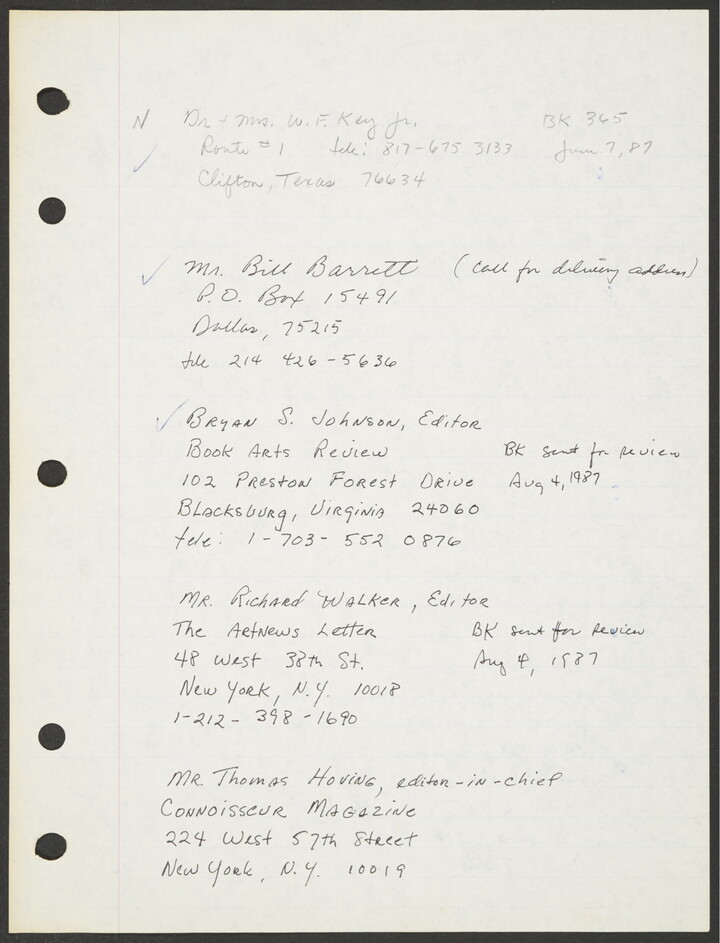 N Dr + Mrs. W. F. Key Jr. BK 365
Route #1 tele: 817-675 3133 June 7, 87
Clifton, Texas 76634
Mr. Bill Barrett (call for delivery address)
P.O. Box 15491
Dallas, 75215
tele 214 426-5636
Bryan S. Johnson, Editor
Book Arts Review BK sent for review
102 Preston Forest Drive Aug 4, 1987
Blacksburg, Virginia 24060
tele: 1-703-552 0876
Mr. Richard Walker, Editor
The ArtNews Letter BK sent for review
48 West 38th St. Aug 4, 1987
New York, N.Y. 10018
1-212-398-1690
Mr. Thomas Hoving, editor-in-chief
Connoisseur Magazine
224 West 57th Street
New York, N.Y. 10019